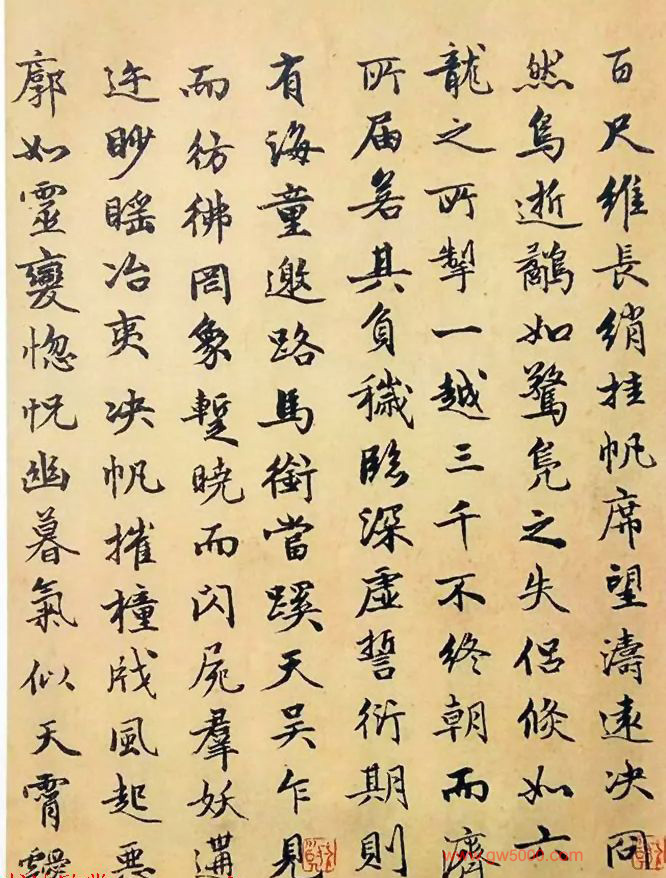 百尺維長綃挂帆席望濤遠决冏
然鳥逝鷸如驚鳧之失侶倏如六
龍之所掣一越三千不終朝而濟
所届若其負穢臨深虛誓衍期則
有海童邀路馬銜當蹊天吳乍見
而彷彿罔象蹔曉而閃屍羣妖遘
迕眇䁘冶夷决帆摧橦戕風起惡
廓如靈變惚怳幽暮氣似天霄